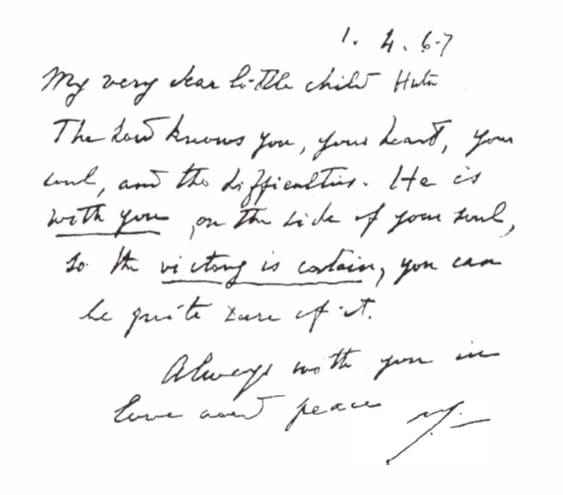 1. 4. 67
My very dear little child Huta
The Lord knows you, your heart, your
soul, and the difficulties. He is
with you, on the side of your soul,
so the victory is certain, you can
be quite sure of it.
Always with you in
love and peace